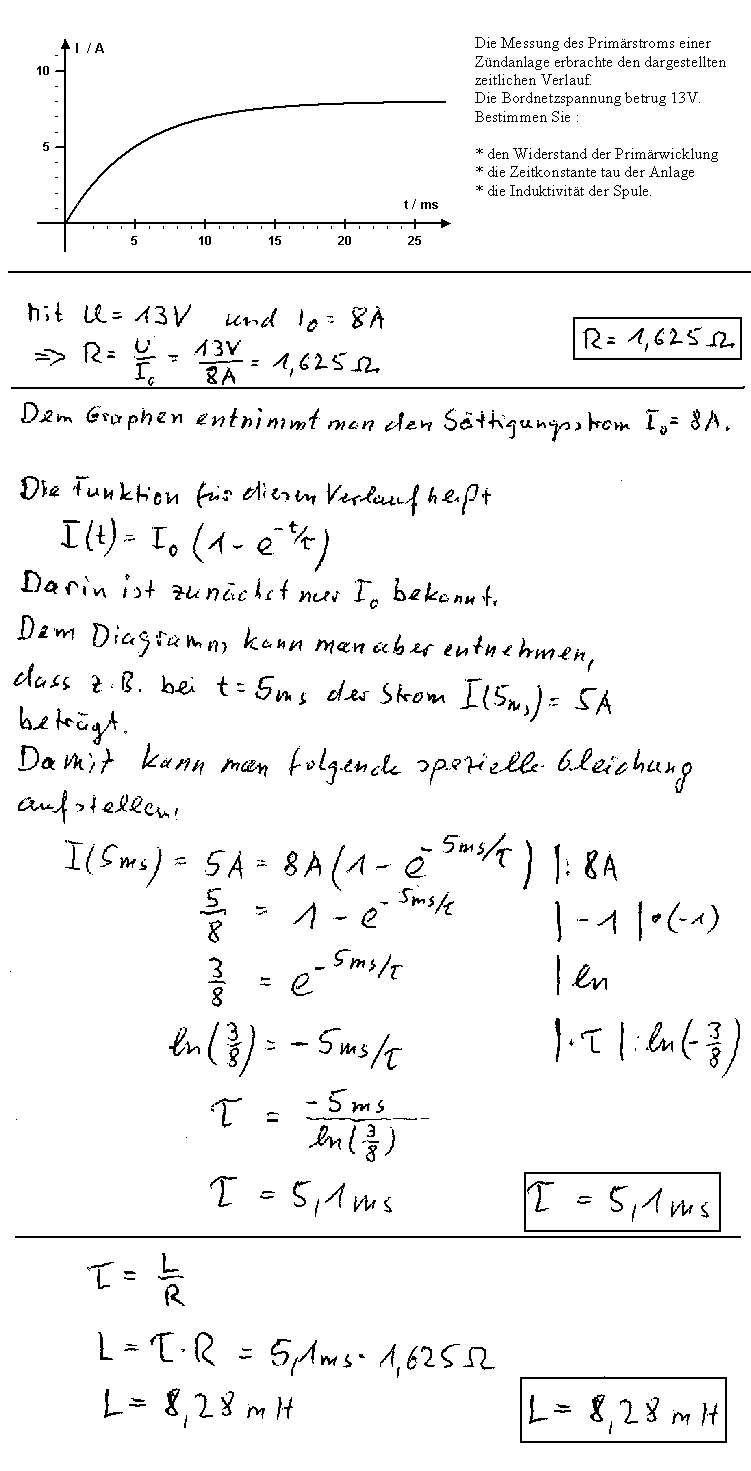 I / A
10
5
t / ms
5 10 15 20 25
Die Messung des Primärstroms einer
Zündanlage erbrachte den dargestellten
zeitlichen Verlauf.
Die Bordnetzspannung betrug 13V.
Bestimmen Sie :
* den Widerstand der Primärwicklung
* die Zeitkonstante tau der Anlage
* die Induktivität der Spule.
Mit U = 13V und I₀ = 8A
=> R = U/I₀ = 13V/8A = 1,625 Ω
R = 1,625 Ω
Dem Graphen entnimmt man den Sättigungsstrom I₀ = 8A.
Die Funktion für diesen Verlauf heißt
I(t) = I₀ (1 - e^(-t/τ))
Darin ist zunächst nur I₀ bekannt.
Dem Diagramm kann man aber entnehmen,
dass z.B. bei t = 5ms der Strom I(5ms) = 5A
beträgt.
Damit kann man folgende spezielle Gleichung
aufstellen:
I(5ms) = 5A = 8A (1 - e^(-5ms/τ)) |: 8A
5/8 = 1 - e^(-5ms/τ) | -1 | •(-1)
3/8 = e^(-5ms/τ) | ln
ln(3/8) = -5ms/τ |·τ |: ln(-3/8)
τ = -5ms / ln(3/8)
τ = 5,1ms
τ = 5,1ms
τ = L/R
L = τ·R = 5,1ms · 1,625 Ω
L = 8,28 mH
L = 8,28 mH